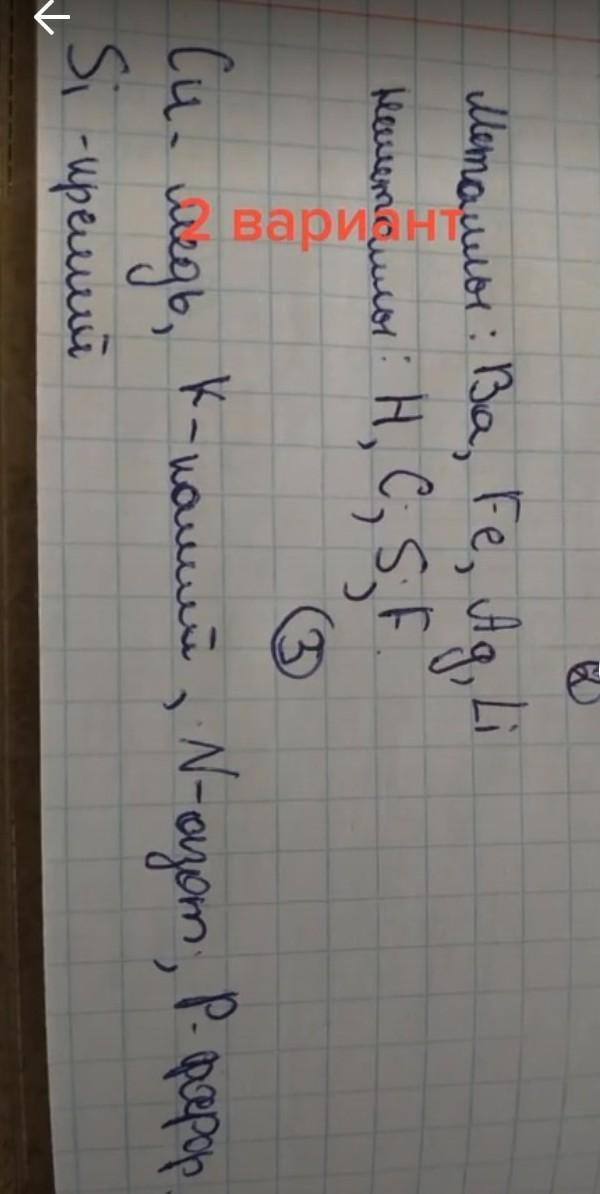 2 вариант
②
Металлы: Ba, Fe, Ag, Li
Неметаллы: H, C, S, F.
③
Cu - медь, K - калий, N - азот, P - фосфор,
Si - кремний